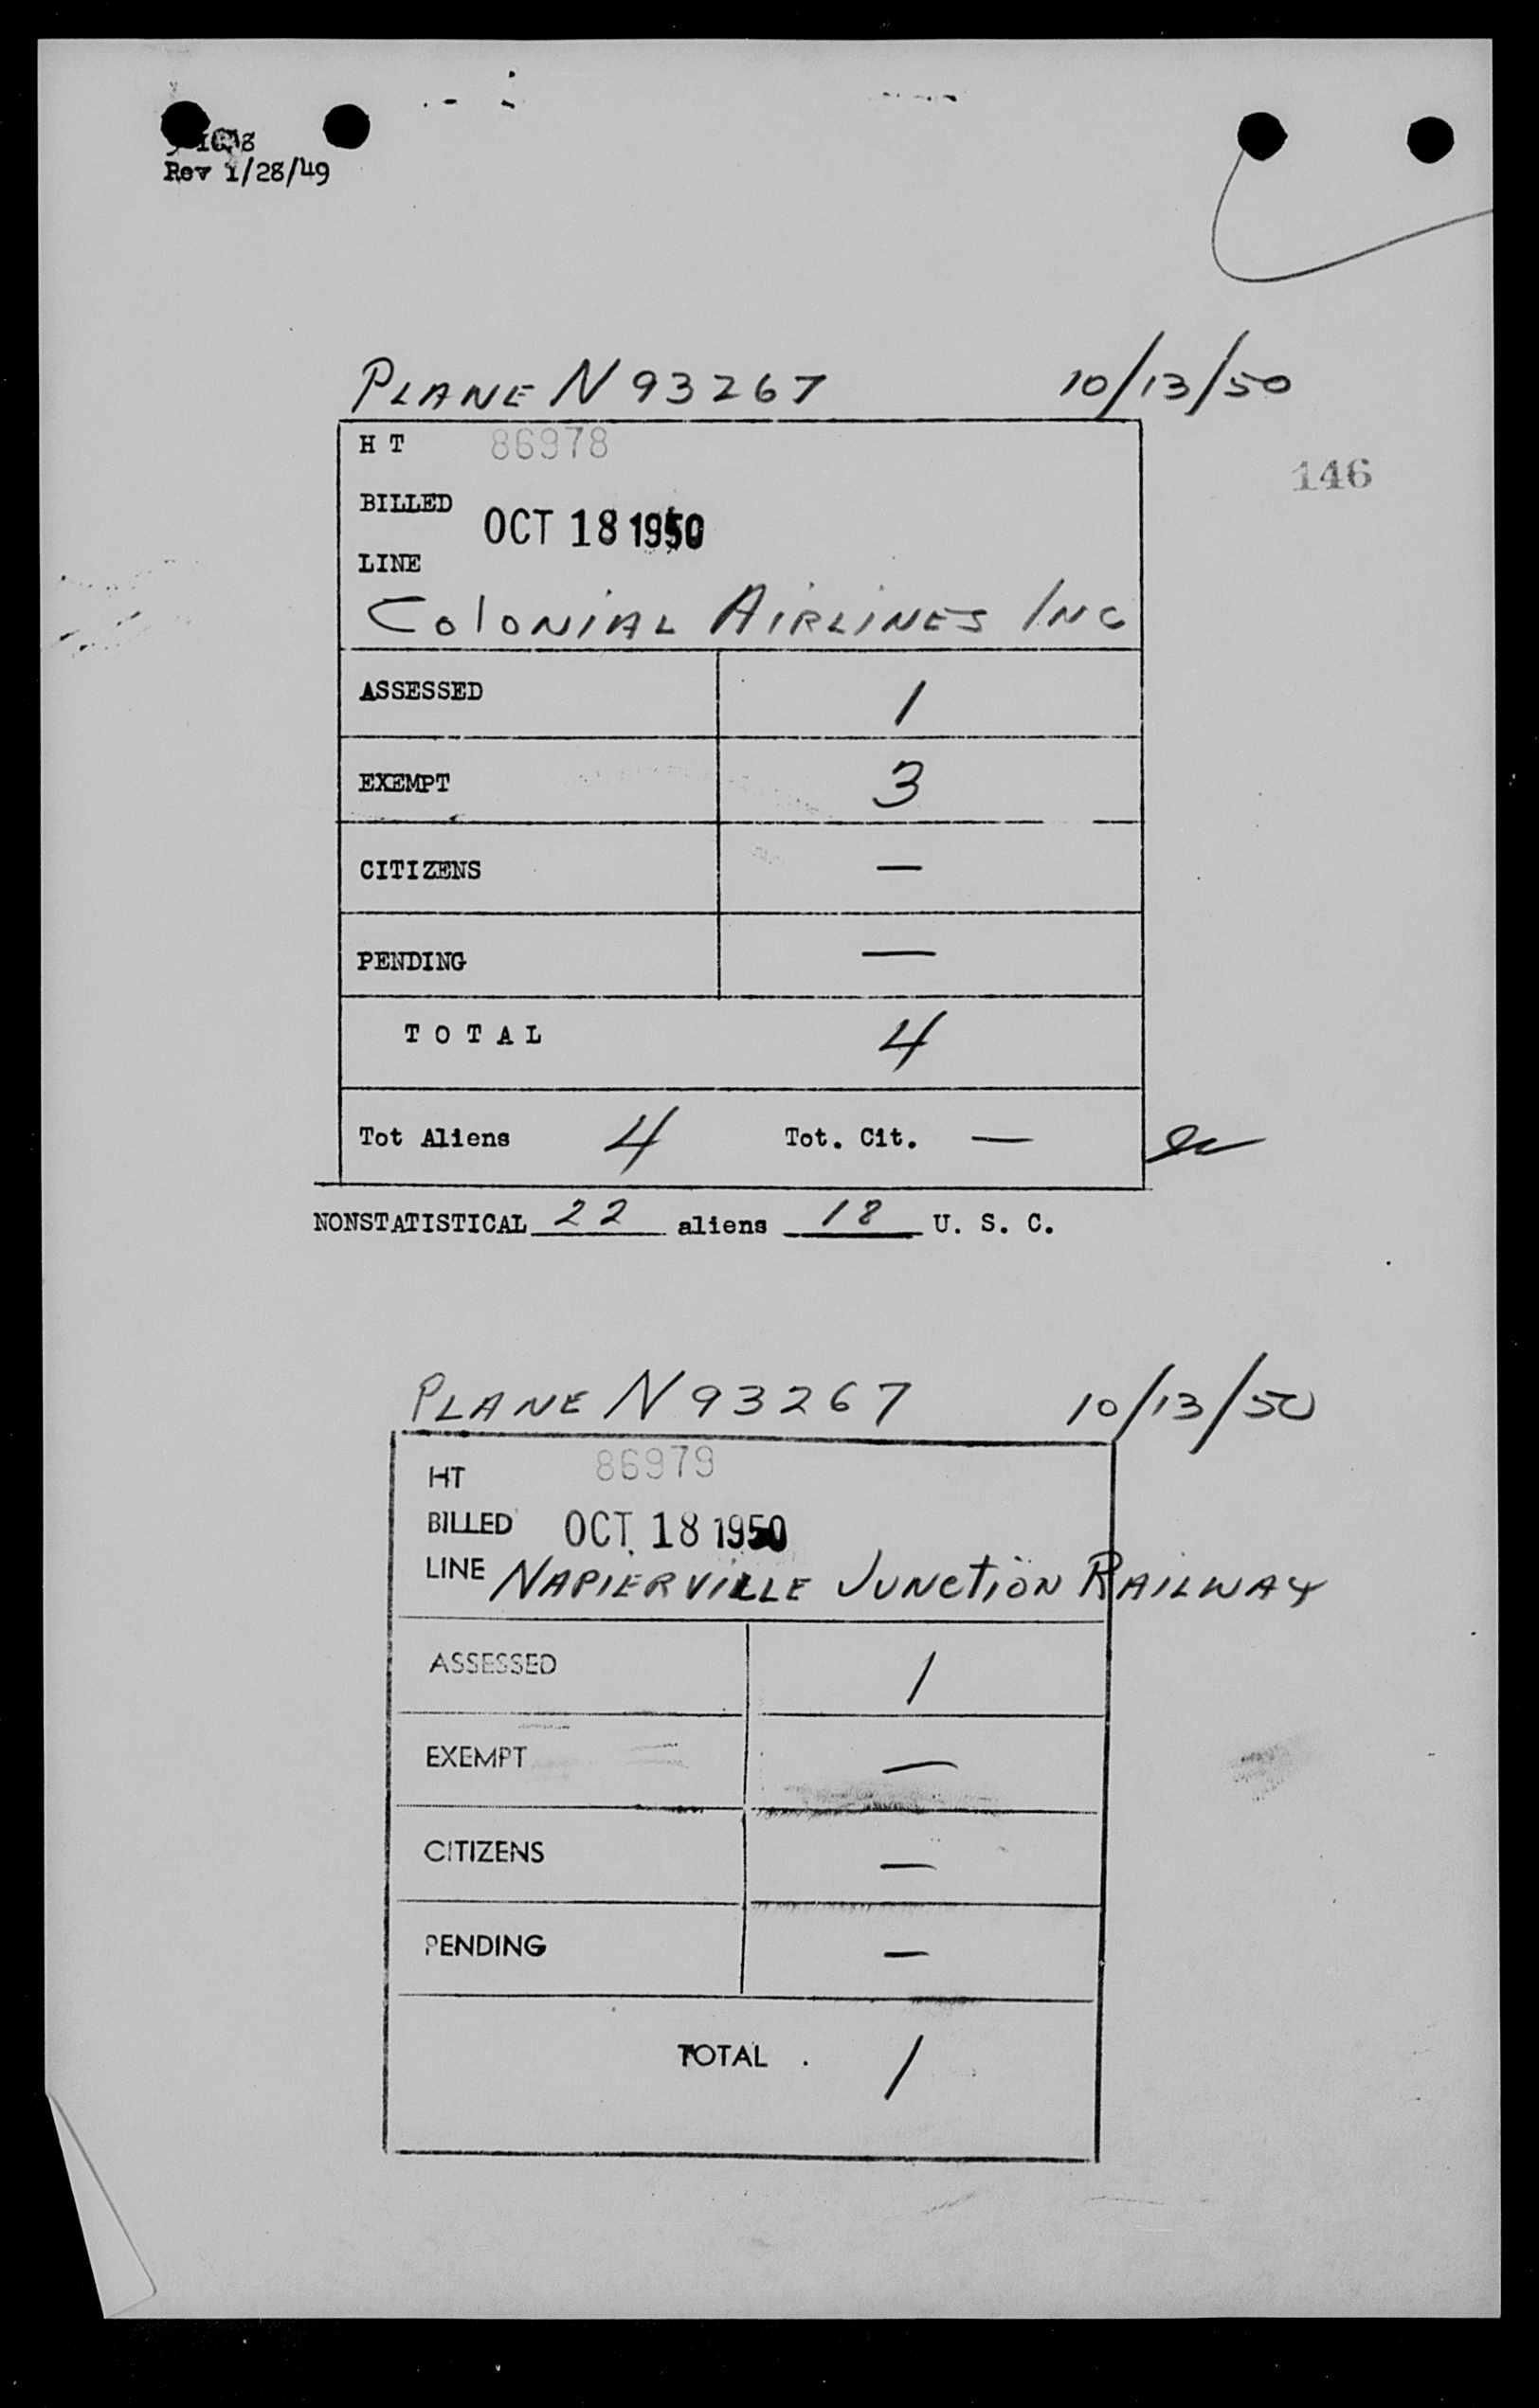 Rev 1/28/49
PLANE N 93267 10/13/50
H T 86978
146
BILLED OCT 18 1950
LINE
COLONIAL AIRLINES INC
ASSESSED 1
EXEMPT 3
CITIZENS —
PENDING —
TOTAL 4
Tot Aliens 4 Tot. Cit. —
NONSTATISTICAL 22 aliens 18 U. S. C.
PLANE N 93267 10/13/50
HT 86979
BILLED OCT. 18 1950
LINE NAPIERVILLE JUNCTION RAILWAY
ASSESSED 1
EXEMPT —
CITIZENS —
PENDING —
TOTAL . 1